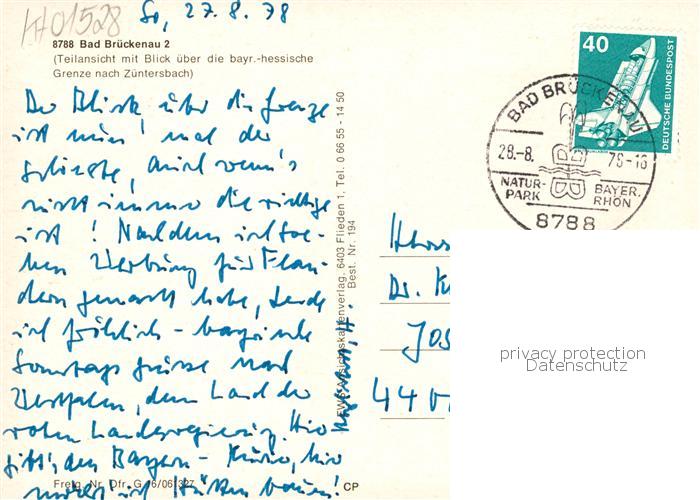 HO1528
So, 27.8.78
8788 Bad Brückenau 2
(Teilansicht mit Blick über die bayr.-hessische
Grenze nach Züntersbach)
Der Blick über die Grenze
ist nun 'mal der
schönste, auch wenn's
nicht immer die richtige
ist! Nachdem ich soe-
ben Werbung für Flan-
dern gemacht habe, sende
ich fröhlich - bayrische
Sonntagsgrüsse nach
Westfalen, dem Land der
roten Landesregierung. Hier
gibt's den Bayern-Kurier, hier
ich Hütten bauen!
Freig. Nr. Dfr. G 16/06327
Ansichtskartenverlag, 6403 Flieden 1, Tel. 0 66 55 - 14 50
Best. Nr. 194
CP
40
DEUTSCHE BUNDESPOST
BAD BRÜCKENAU
28.-8. 78-18
NATUR-
PARK
BAYER.
RHÖN
8788
Herrn
Dr. K
Jos
440
privacy protection
Datenschutz